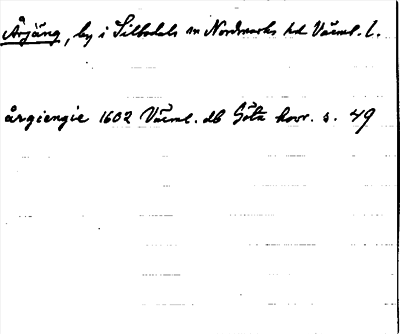 Årjäng, by i Silbodals sn Nordmarks hd Värml. l.
årgiengie 1602 Värml. db Göta hovr. s. 49